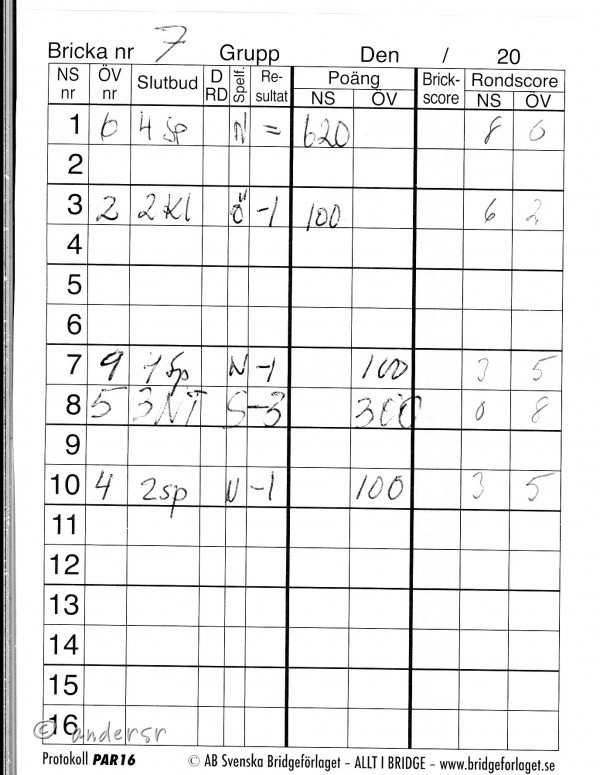 Bricka nr 7 Grupp Den / 20
NS nr ÖV nr Slutbud D RD Spelf. Re-sultat Poäng NS ÖV Brick-score Rondscore NS ÖV
1 6 4 Sp N = 620 8 0
2
3 2 2 Kl Ö -1 100 6 2
4
5
6
7 9 1 Sp N -1 100 3 5
8 5 3NT S -3 300 0 8
9
10 4 2sp N -1 100 3 5
11
12
13
14
15
16
© andersr
Protokoll PAR16 © AB Svenska Bridgeförlaget – ALLT I BRIDGE – www.bridgeforlaget.se